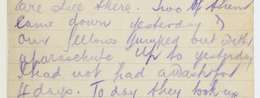 are live there. Two of them
came down yesterday &
our fellows jumped out with
a parachute. Up to yesterday
I had not had a wash for
4 days. To day they took us